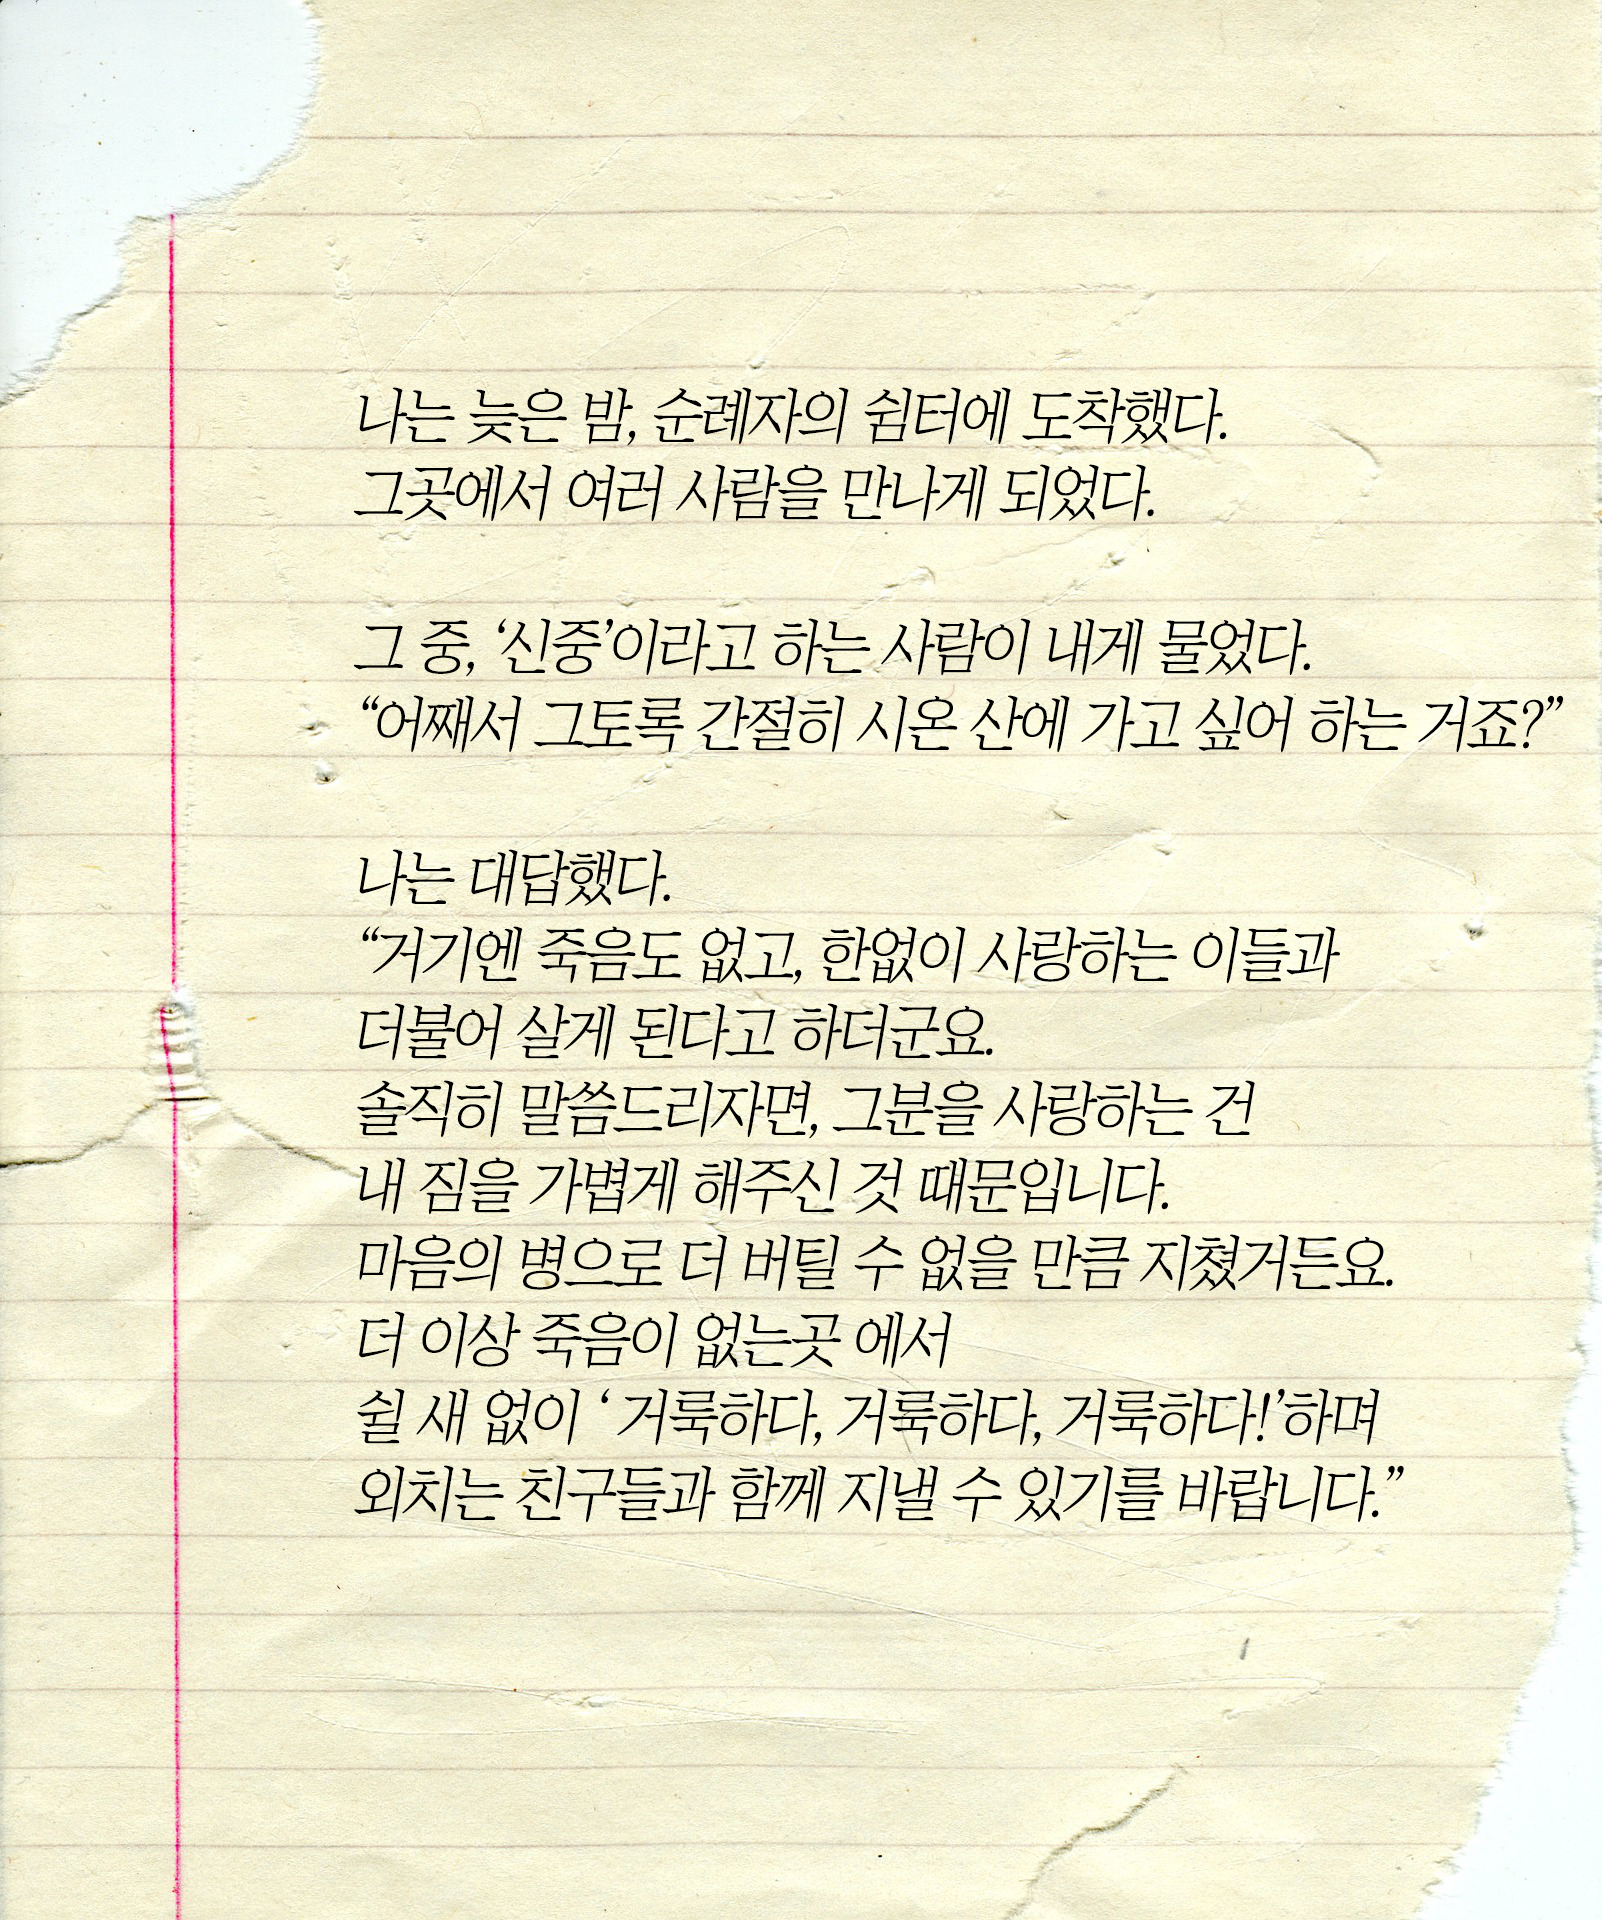 나는 늦은 밤, 순례자의 쉼터에 도착했다.
그곳에서 여러 사람을 만나게 되었다.
그 중, ‘신중’이라고 하는 사람이 내게 물었다.
“어째서 그토록 간절히 시온 산에 가고 싶어 하는 거죠?”
나는 대답했다.
“거기엔 죽음도 없고, 한없이 사랑하는 이들과
더불어 살게 된다고 하더군요.
솔직히 말씀드리자면, 그분을 사랑하는 건
내 짐을 가볍게 해주신 것 때문입니다.
마음의 병으로 더 버틸 수 없을 만큼 지쳤거든요.
더 이상 죽음이 없는곳 에서
쉴 새 없이 ‘ 거룩하다, 거룩하다, 거룩하다!’하며
외치는 친구들과 함께 지낼 수 있기를 바랍니다.”